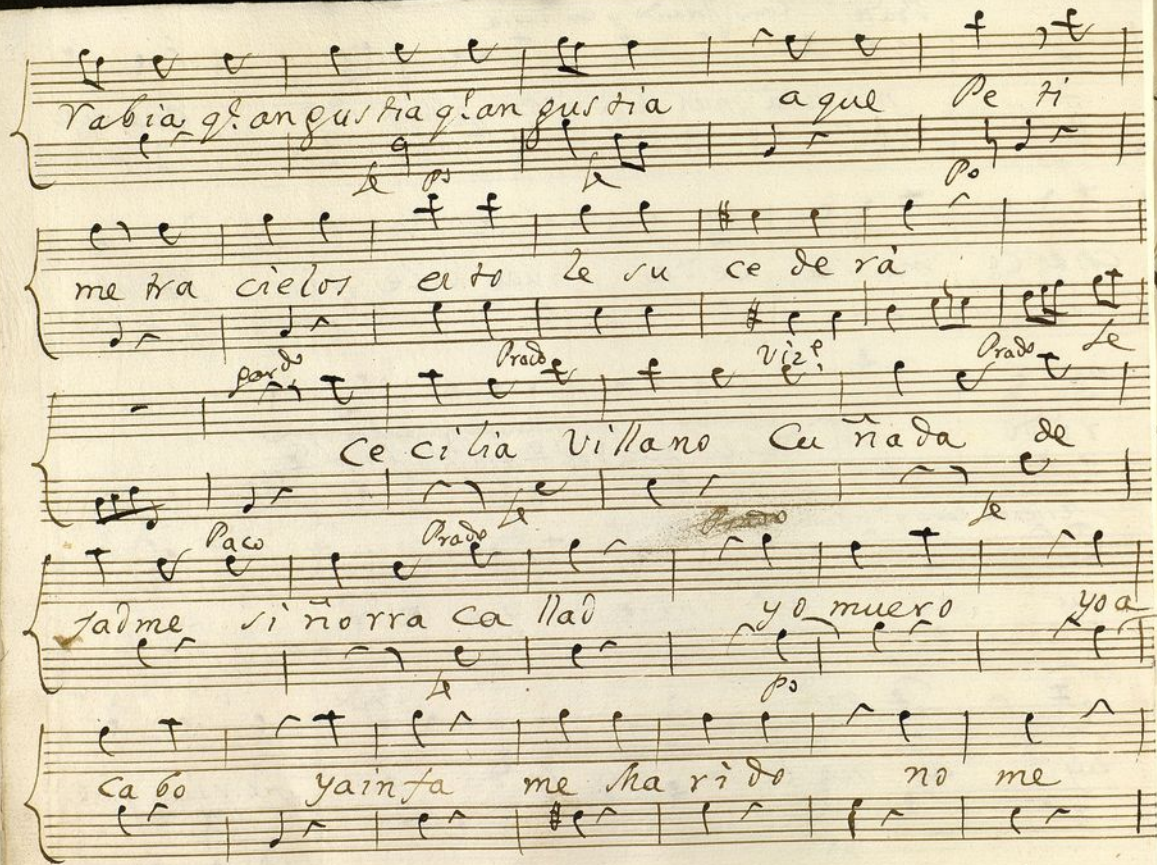 rabia q.e angustia q.e angustia aque Pe ti
fe po fe Po
me tra cielos esto le su ce de rà
pardo Prado Viz.e Prado fe
Ce cilia Villano Cu ñada de
Paco Prado fe fe
jadme si ñorra Ca llad yo muero yo a
fe po
ca bo ya infa me Ma ri do no me